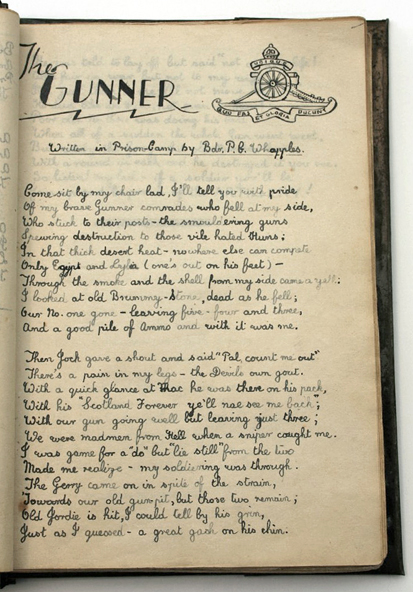 The
GUNNER
UBIQUE
QUO FAS ET GLORIA DUCUNT
Written in Prison Camp by Bdr. P. G. Whapples.
Come sit by my chair lad, I'll tell you with pride
Of my brave Gunner comrades who fell at my side,
Who stuck to their posts - the smouldering guns
Spewing destruction to those vile hated Huns;
In that thick desert heat - nowhere else can compete
Only Egypt and Lybia (one's out on his feet) -
Through the smoke and the shell from my side came a yell;
I looked at old Brummy - stone dead as he fell;
Our No. one gone - leaving five - four and three,
And a good pile of Ammo and with it was me.
Then Jock gave a shout and said "Pal, count me out"
There's a pain in my legs - the Devils own gout.
With a quick glance at Mac he was there on his pack,
With his "Scotland Forever ye'll nae see me back";
With our gun going well but leaving just three;
We were madmen from Hell when a sniper caught me.
I was game for a "do" but "lie still" from the two
Made me realize - my soldiering was through.
The Gerry came on in spite of the strain,
Towards our old gunpit, but those two remain;
Old Jordie is hit, I could tell by his grin,
Just as I guessed - a great gash on his chin.